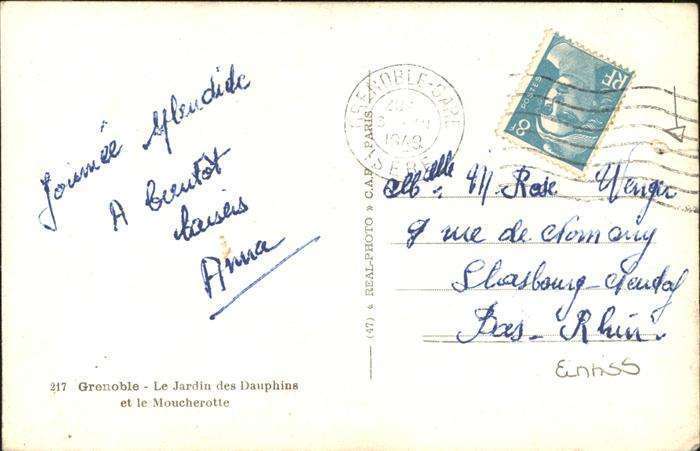 Journée splendide
A bientôt
baisers
Anna
217 Grenoble - Le Jardin des Dauphins
et le Moucherotte
(47) « REAL-PHOTO » C.A.P. - PARIS
GRENOBLE-GARE
1949
ISERE
POSTES
RF
8F
Mlle M. Rose Wenger
9 rue de
Strasbourg-Neudorf
Bas-Rhin